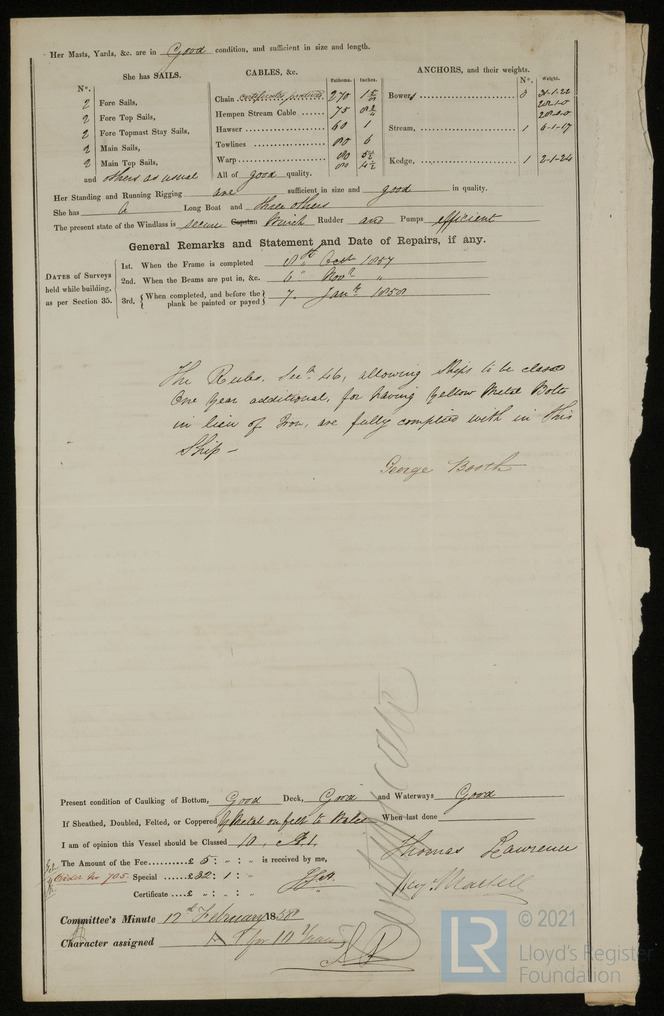 Her Masts, Yards, &c. are in Good condition, and sufficient in size and length.
She has SAILS.
CABLES, &c.
Fathoms. Inches.
ANCHORS, and their weights.
N°. Weight.
N°.
2 Fore Sails,
2 Fore Top Sails,
2 Fore Topmast Stay Sails,
2 Main Sails,
2 Main Top Sails,
and others as usual
Chain certificates produced 270
Hempen Stream Cable 75
Hawser 60
Towlines 80 6
Warp
All of good quality.
Bowers 3 31-1-22
Stream, 1 6-1-17
Kedge, 1 2-1-24
Her Standing and Running Rigging are sufficient in size and good in quality.
She has a Long Boat and three others
The present state of the Windlass is secure Capstan Winch Rudder and Pumps efficient
General Remarks and Statement and Date of Repairs, if any.
DATES of Surveys held while building, as per Section 35.
1st. When the Frame is completed 8th Octr 1857
2nd. When the Beams are put in, &c. 6" Novr "
3rd. {When completed, and before the plank be painted or payed} 7. Jany 1858
The Rules, Secn. 46, allowing Ships to be classed
One year additional, for having Yellow Metal Bolts
in lieu of Iron, are fully complied with in this
Ship -
George Booth
Present condition of Caulking of Bottom, Good Deck, Good and Waterways Good
If Sheathed, Doubled, Felted, or Coppered Y Metal on felt to Wales When last done
I am of opinion this Vessel should be Classed 10, A.1.
Thomas Lawrence
The Amount of the Fee £ 5 : " : " is received by me,
Order No 705. Special £32 : 1 : "
Hy. Martell
Certificate £ " : " : "
Committee's Minute 12th February 1858
Character assigned A 1 for 10 Years
© 2021
LR Lloyd's Register
Foundation